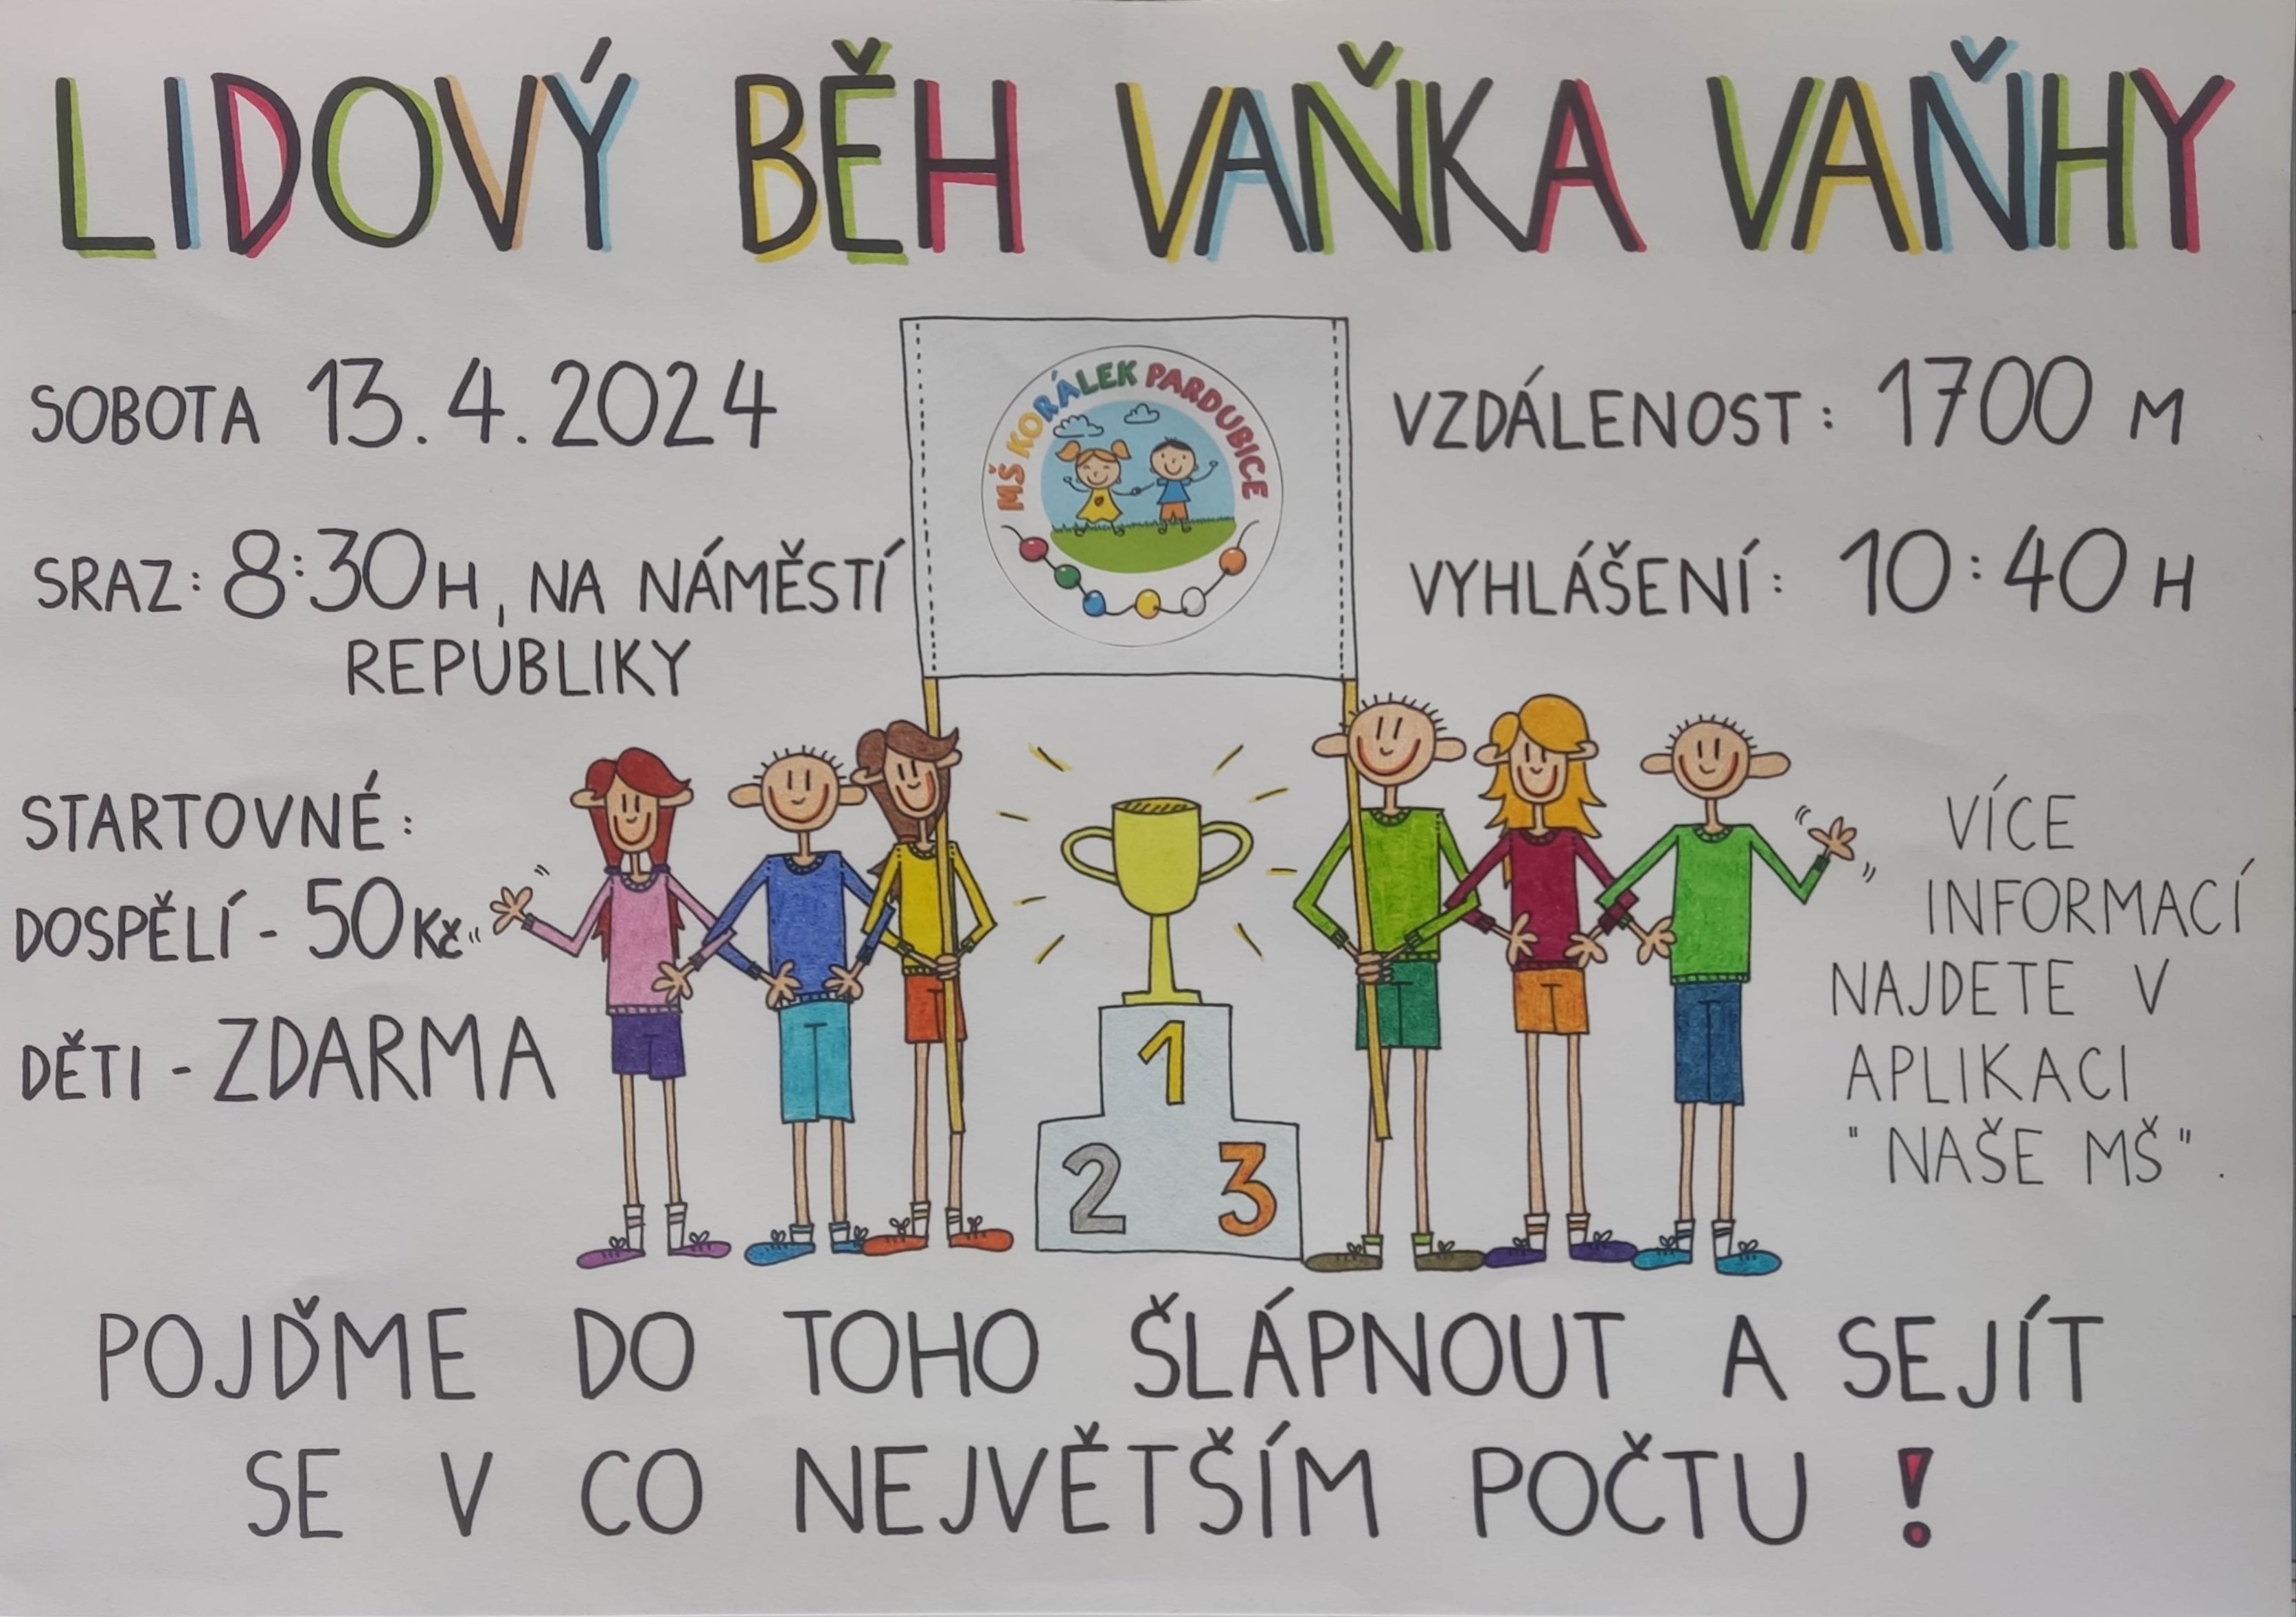 LIDOVÝ BĚH VAŇKA VAŇHY
SOBOTA 13.4.2024
SRAZ: 8:30H, NA NÁMĚSTÍ
REPUBLIKY
STARTOVNÉ:
DOSPĚLÍ - 50Kč
DĚTI - ZDARMA
MŠ KORÁLEK PARDUBICE
1
2 3
VZDÁLENOST: 1700 M
VYHLÁŠENÍ: 10:40 H
VÍCE
INFORMACÍ
NAJDETE V
APLIKACI
"NAŠE MŠ".
POJĎME DO TOHO ŠLÁPNOUT A SEJÍT
SE V CO NEJVĚTŠÍM POČTU!